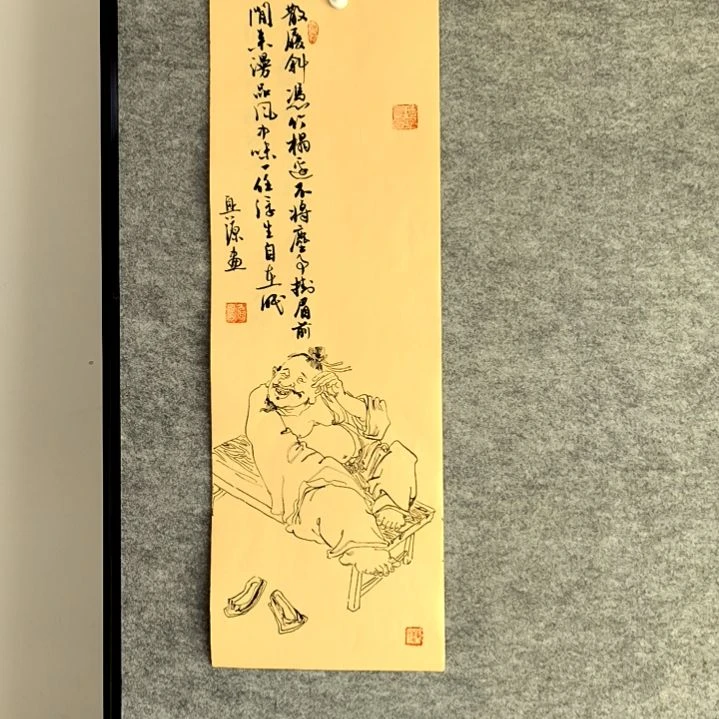 散履斜憑竹榻邊不將塵事掛眉前
閒來漫品風中味一任浮生自在眠
源畫